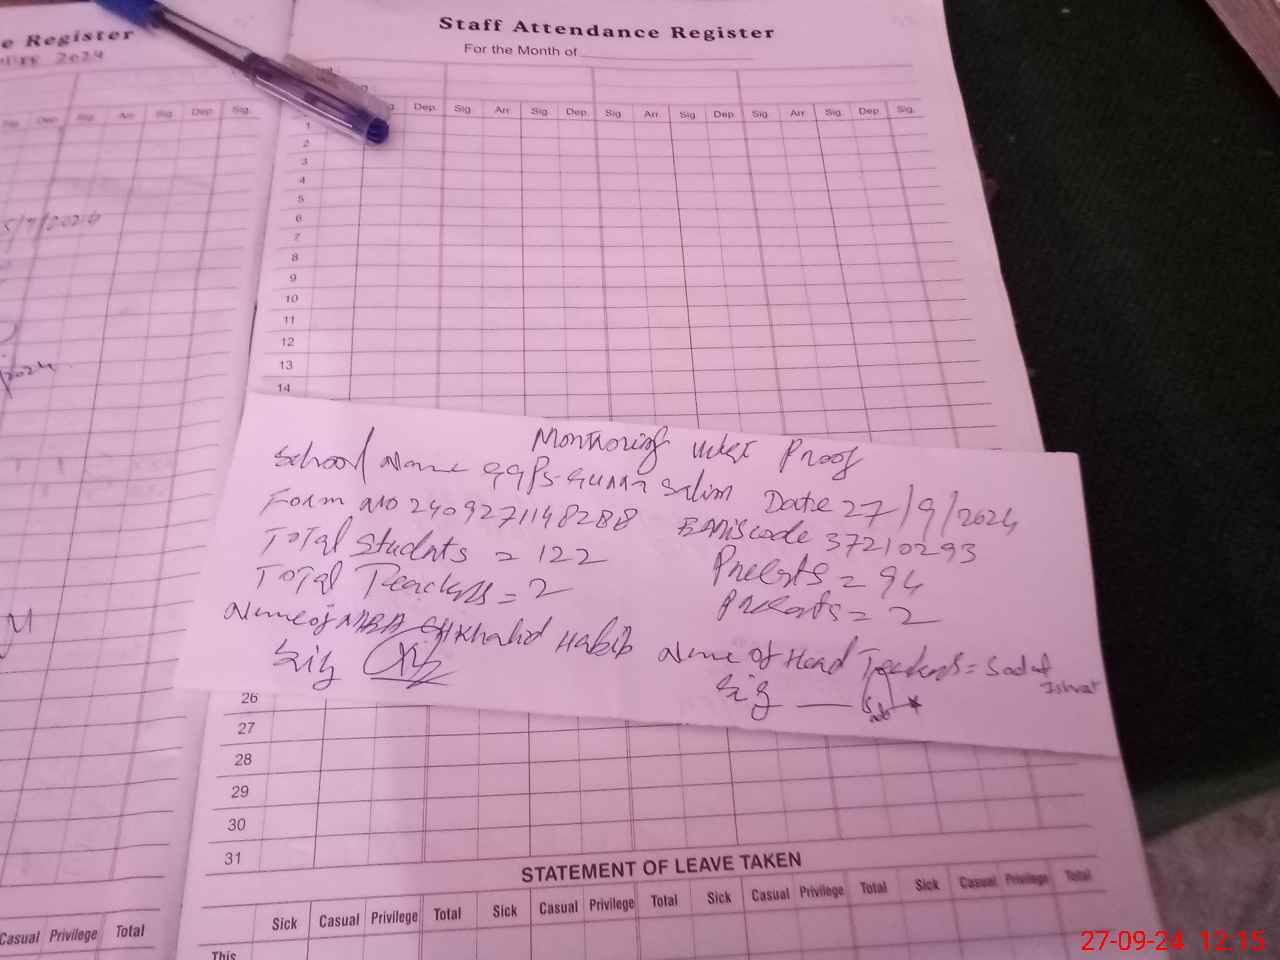 e Register
2024
Sig. Dep. Sig. Arr. Sig. Dep. Sig.
5/9/2024
2024
Casual Privilege Total
Staff Attendance Register
For the Month of
Dep. Sig. Arr. Sig. Dep. Sig. Arr. Sig. Dep. Sig. Arr. Sig. Dep. Sig.
1
2
3
4
5
6
7
8
9
10
11
12
13
14
Proof
School Name GGPS-Salim Date 27/9/2024
Form NO 2409271148288 EMIS code 37210293
Total Students = 122 Presents = 94
Total Teachers = 2 Presents = 2
Name of MEA Khalid Habib Name of Head Teachers = Sadaf
Ishrat
Sig Sig
26
27
28
29
30
31
STATEMENT OF LEAVE TAKEN
Sick Casual Privilege Total Sick Casual Privilege Total Sick Casual Privilege Total Sick Casual Privilege Total
This
27-09-24 12:15